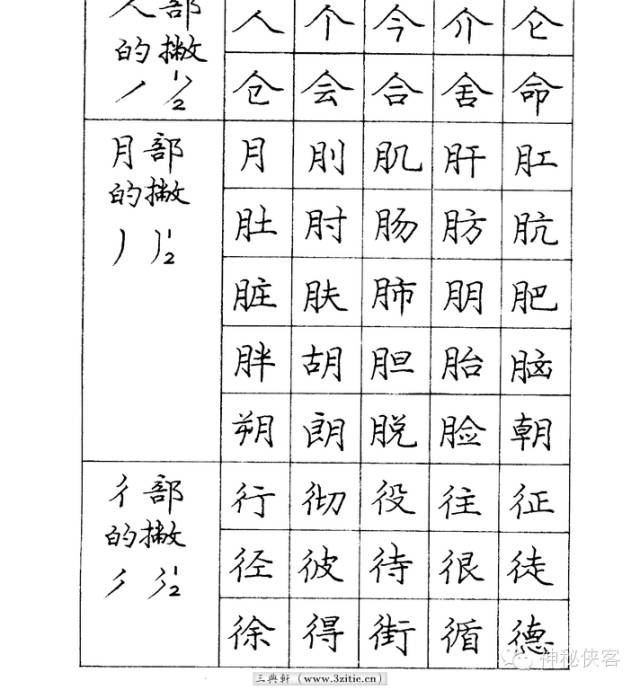 人部 人 个 今 介 仑
的撇 仓 会 合 舍 命
月部 月 刖 肌 肝 肛
的撇 肚 肘 肠 肪 肮
脏 肤 肺 朋 肥
胖 胡 胆 胎 脑
朔 朗 脱 脸 朝
彳部 行 彻 役 往 征
的撇 径 彼 待 很 徒
徐 得 街 循 德
三典轩(www.3zitie.cn)
神秘侠客